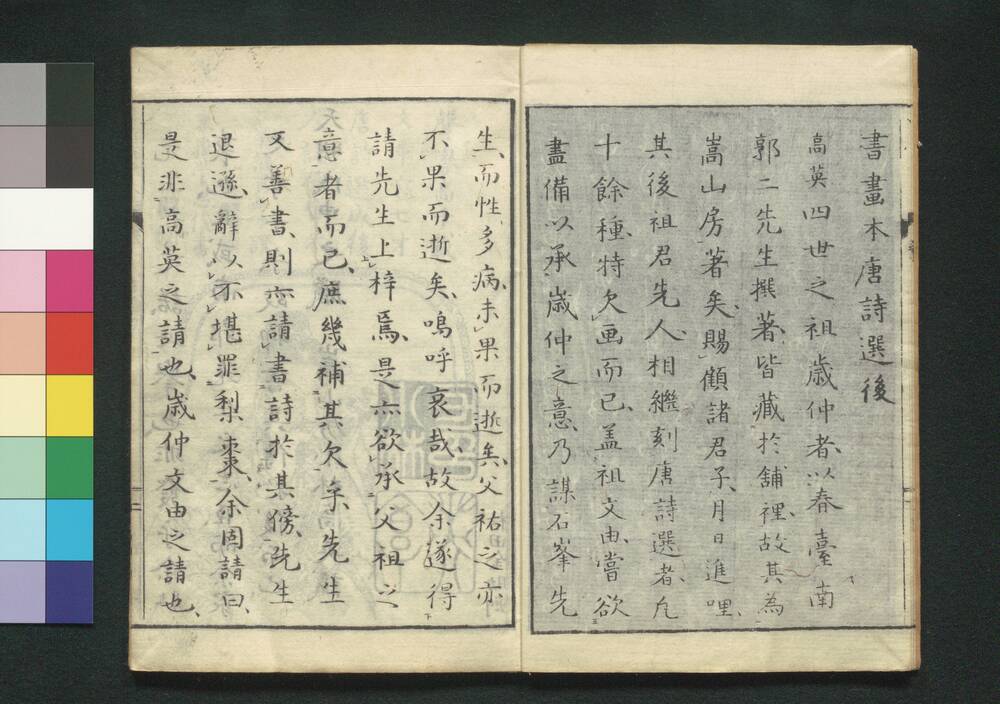 書畫本唐詩選後
高英四世之祖歳仲者以春臺南
郭二先生撰著皆藏於舗裡故其為
嵩山房著矣賜顧諸君子月日進哩
其後祖君先人相繼刻唐詩選者凡
十餘種特欠画而已盖祖文由嘗欲
盡備以承歳仲之意乃謀石峯先
生而性多病未果而逝矣父祐之亦
不果而逝矣嗚呼哀哉故余遂得
請先生上梓焉是亦欲承父祖之
意者而已庶幾補其欠乎先生
又善書則亦請書詩於其傍先生
退遜辭以不堪罪梨棗余固請曰
是非高英之請也歳仲文由之請也